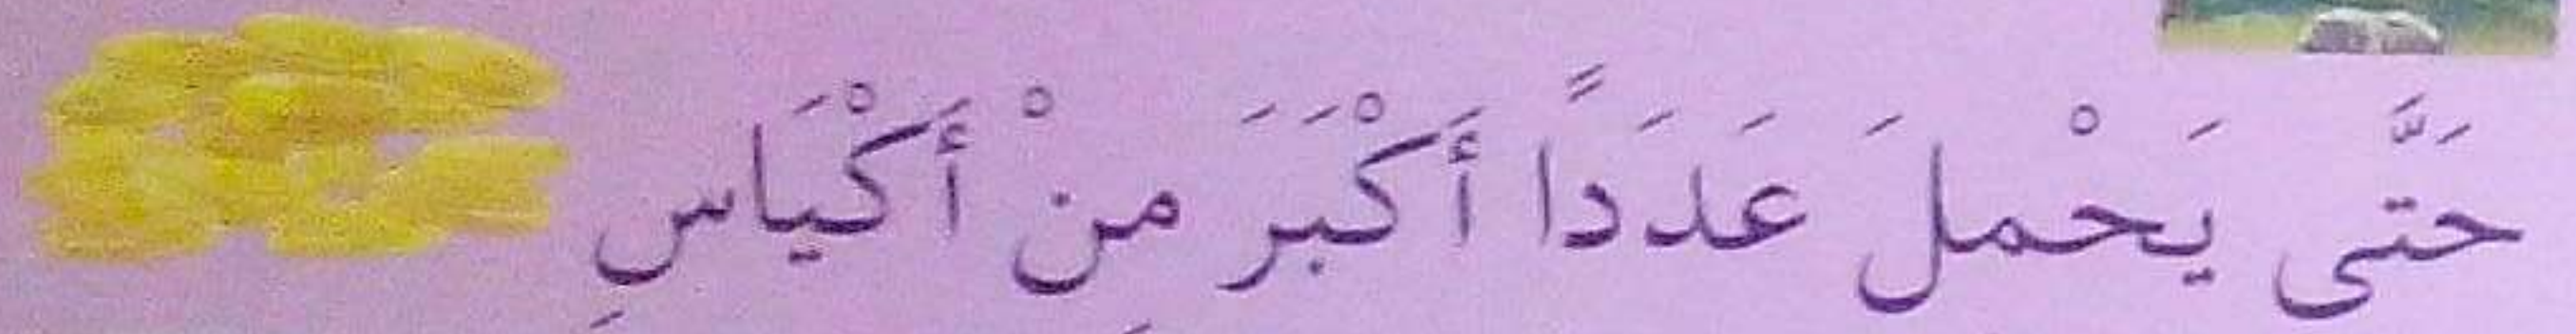 حَتَّى يَحْملَ عَدَداً أَكْبَرَ مِنْ أَكْيَاسِ